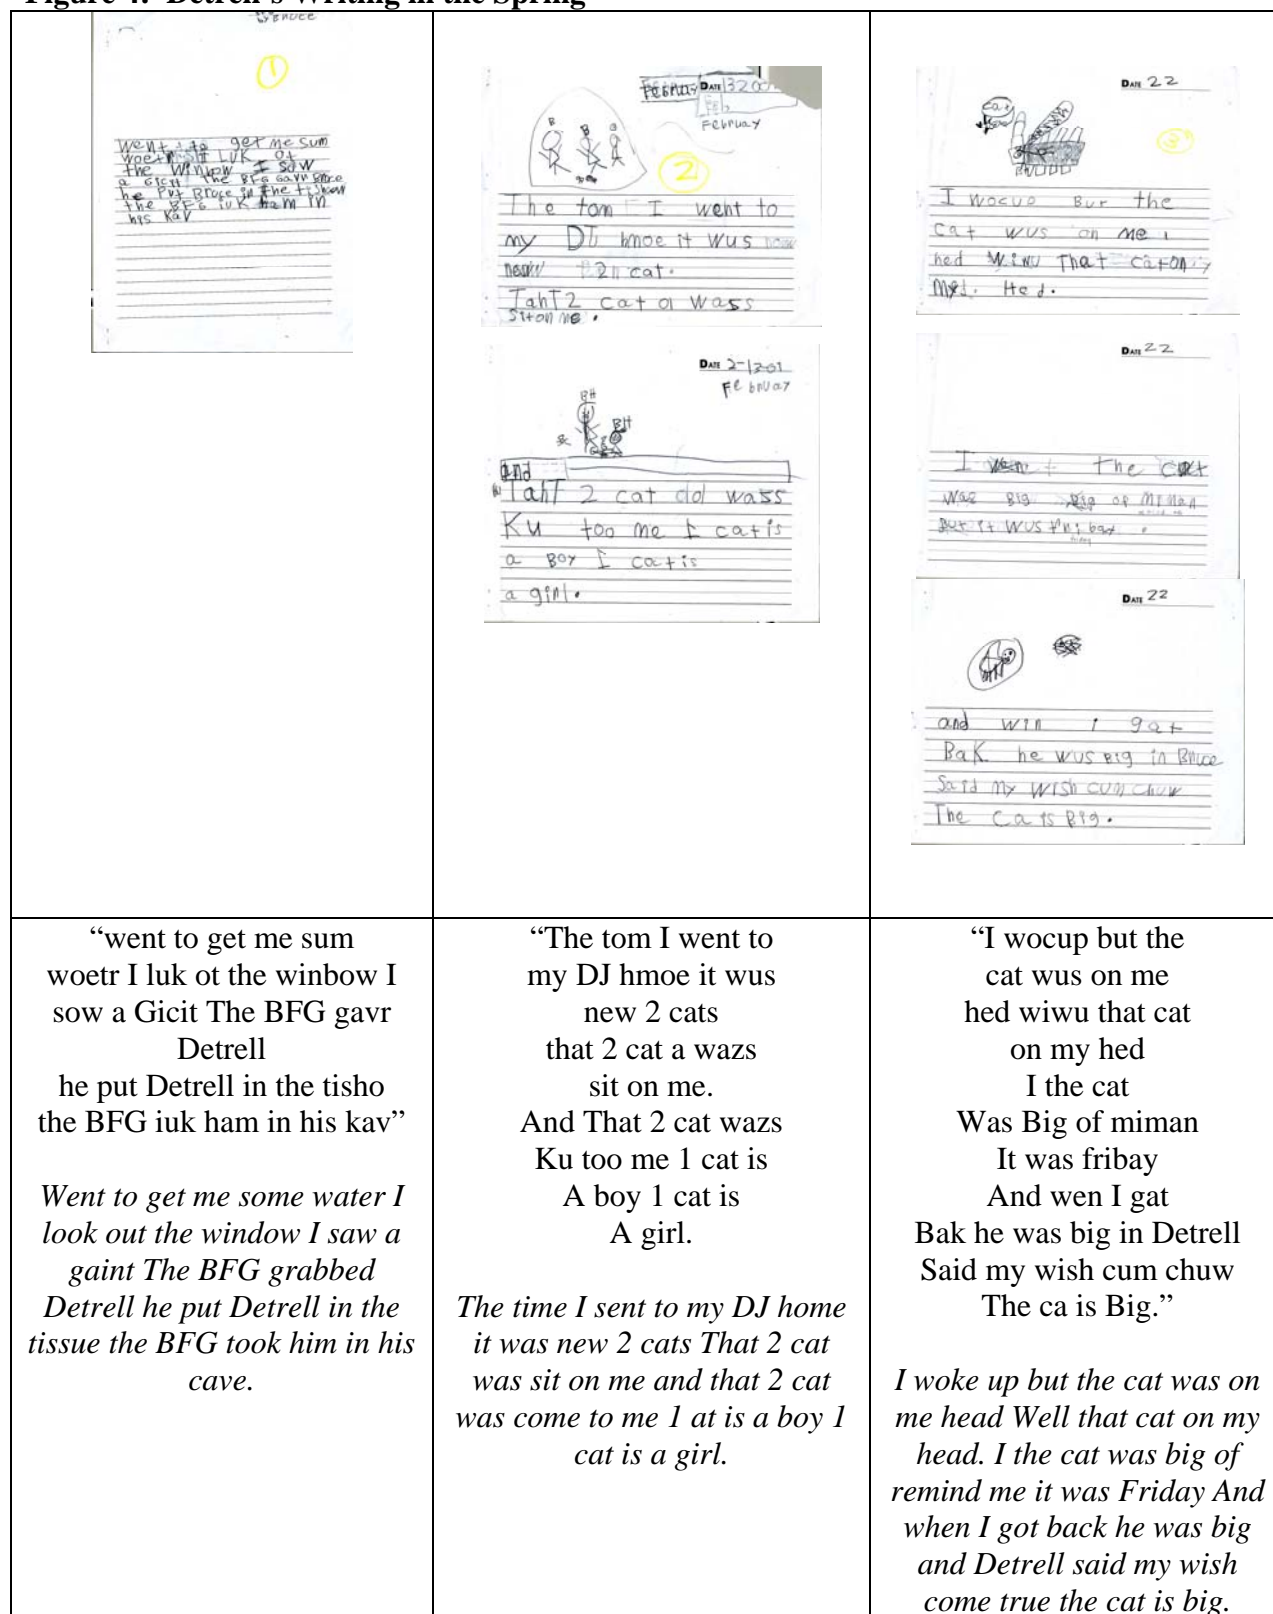 Figure 4: Detrell's Writing in the Spring
by Bruce
1
went to get me sum
woetr I LUK ot
the Winbow I saw
a Gicit The BFG gavr Bruce
he Put Bruce in the tishoo
the BFG iuk ham in
his kav
February DATE 13200
Feb
February
B B G
2
The tom I went to
my DJ hmoe it wus
new 2n cat.
TahT 2 cat a wass
sit on me.
DATE 2-1201
February
BH
BH
and
TahT 2 cat wass
Ku too me I cat is
a BoY I cat is
a girl.
DATE 22
3
I wocup But the
cat wus on me
hed wiwu That cat on my
Hed.
DATE 22
I the cat
was Big Big of miman
But it wus
DATE 22
and win i gat
Bak he wus Big in Bruce
Said my wish cum chuw
The Ca is Big.
“went to get me sum
woetr I luk ot the winbow I
sow a Gicit The BFG gavr
Detrell
he put Detrell in the tisho
the BFG iuk ham in his kav”
Went to get me some water I
look out the window I saw a
gaint The BFG grabbed
Detrell he put Detrell in the
tissue the BFG took him in his
cave.
“The tom I went to
my DJ hmoe it wus
new 2 cats
that 2 cat a wazs
sit on me.
And That 2 cat wazs
Ku too me 1 cat is
A boy 1 cat is
A girl.
The time I sent to my DJ home
it was new 2 cats That 2 cat
was sit on me and that 2 cat
was come to me 1 at is a boy 1
cat is a girl.
“I wocup but the
cat wus on me
hed wiwu that cat
on my hed
I the cat
Was Big of miman
It was fribay
And wen I gat
Bak he was big in Detrell
Said my wish cum chuw
The ca is Big.”
I woke up but the cat was on
me head Well that cat on my
head. I the cat was big of
remind me it was Friday And
when I got back he was big
and Detrell said my wish
come true the cat is big.